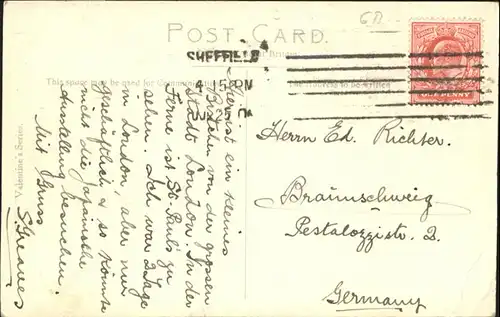 POST CARD.
SHEFFIELD
4.15 PM
This space may be used for Communication
The Address to be written
Valentine's Series
Hier ist ein kleines
Bildchen von der grossen
Stadt London. In der
Ferne ist St. Paul's zu
sehen. Ich war 2 Tage
in London, aber nur
geschäftlich & so konnte
nicht die Japanische
Ausstellung besuchen.
Mit Gruss
S. Greaves
Herrn Ed. Richter.
Braunschweig
Pestalozzistr. 2.
Germany